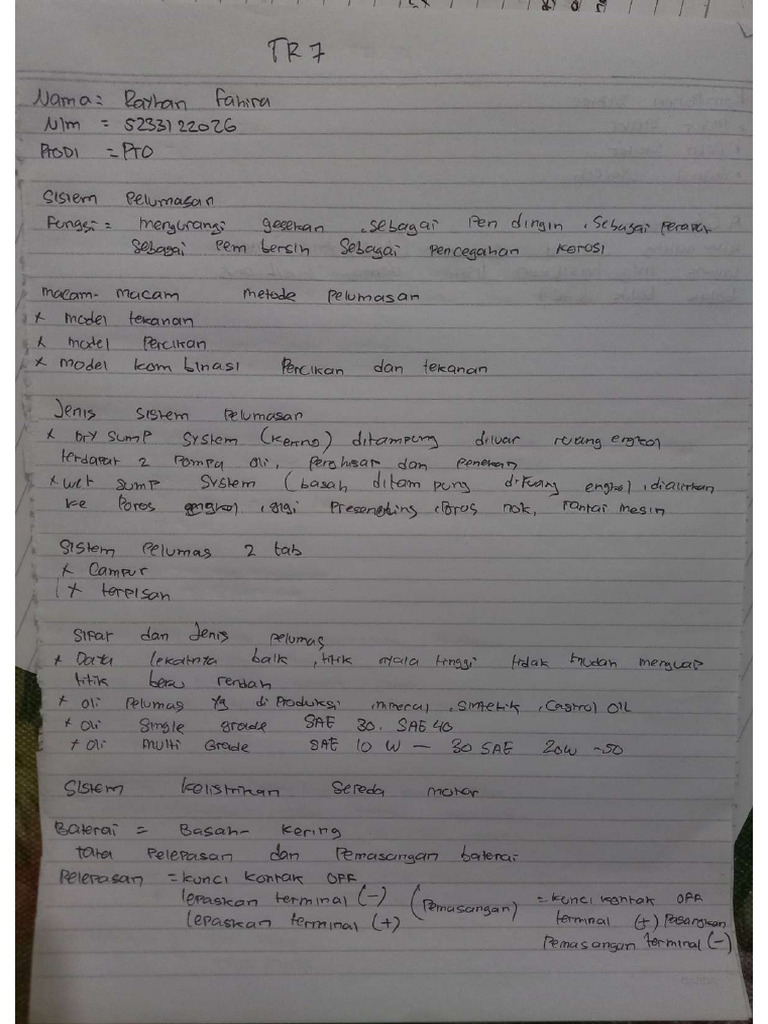 TR 7
Nama = Rayhan Fahira
NIm = 5233122026
PRODI = PTO
Sistem Pelumasan
Fungsi = mengurangi gesekan, sebagai Pendingin, Sebagai perapat
Sebagai Pembersih Sebagai pencegahan korosi
macam-macam metode pelumasan
x model tekanan
x model Percikan
x model kombinasi Percikan dan tekanan
Jenis sistem pelumasan
x Dry sump system (kering) ditampung diluar ruang engkol
terdapat 2 Pompa oli, penghisap dan penekan
x wet sump system (basah ditampung diruang engkol, dialirkan
ke Poros engkol, gigi Preseneling, Poros nok, rantai mesin
Sistem Pelumas 2 tak
x Campur
x terpisah
Sifat dan Jenis pelumas
x Daya lekatnya baik, titik nyala tinggi tidak mudah menguap
titik beku rendah
x oli Pelumas yg di Produksi mineral, Sintetik, Castrol OIL
x oli Single grade SAE 30. SAE 40
x oli multi Grade SAE 10 W - 30 SAE 20W -50
Sistem kelistrikan Sepeda motor
Baterai = Basah- kering
tata Pelepasan dan Pemasangan baterai
Pelepasan = kunci kontak OFF
lepaskan terminal (-)
lepaskan terminal (+)
(Pemasangan) = kunci kontak OFF
terminal (+) Pasangkan
Pemasangan terminal (-)